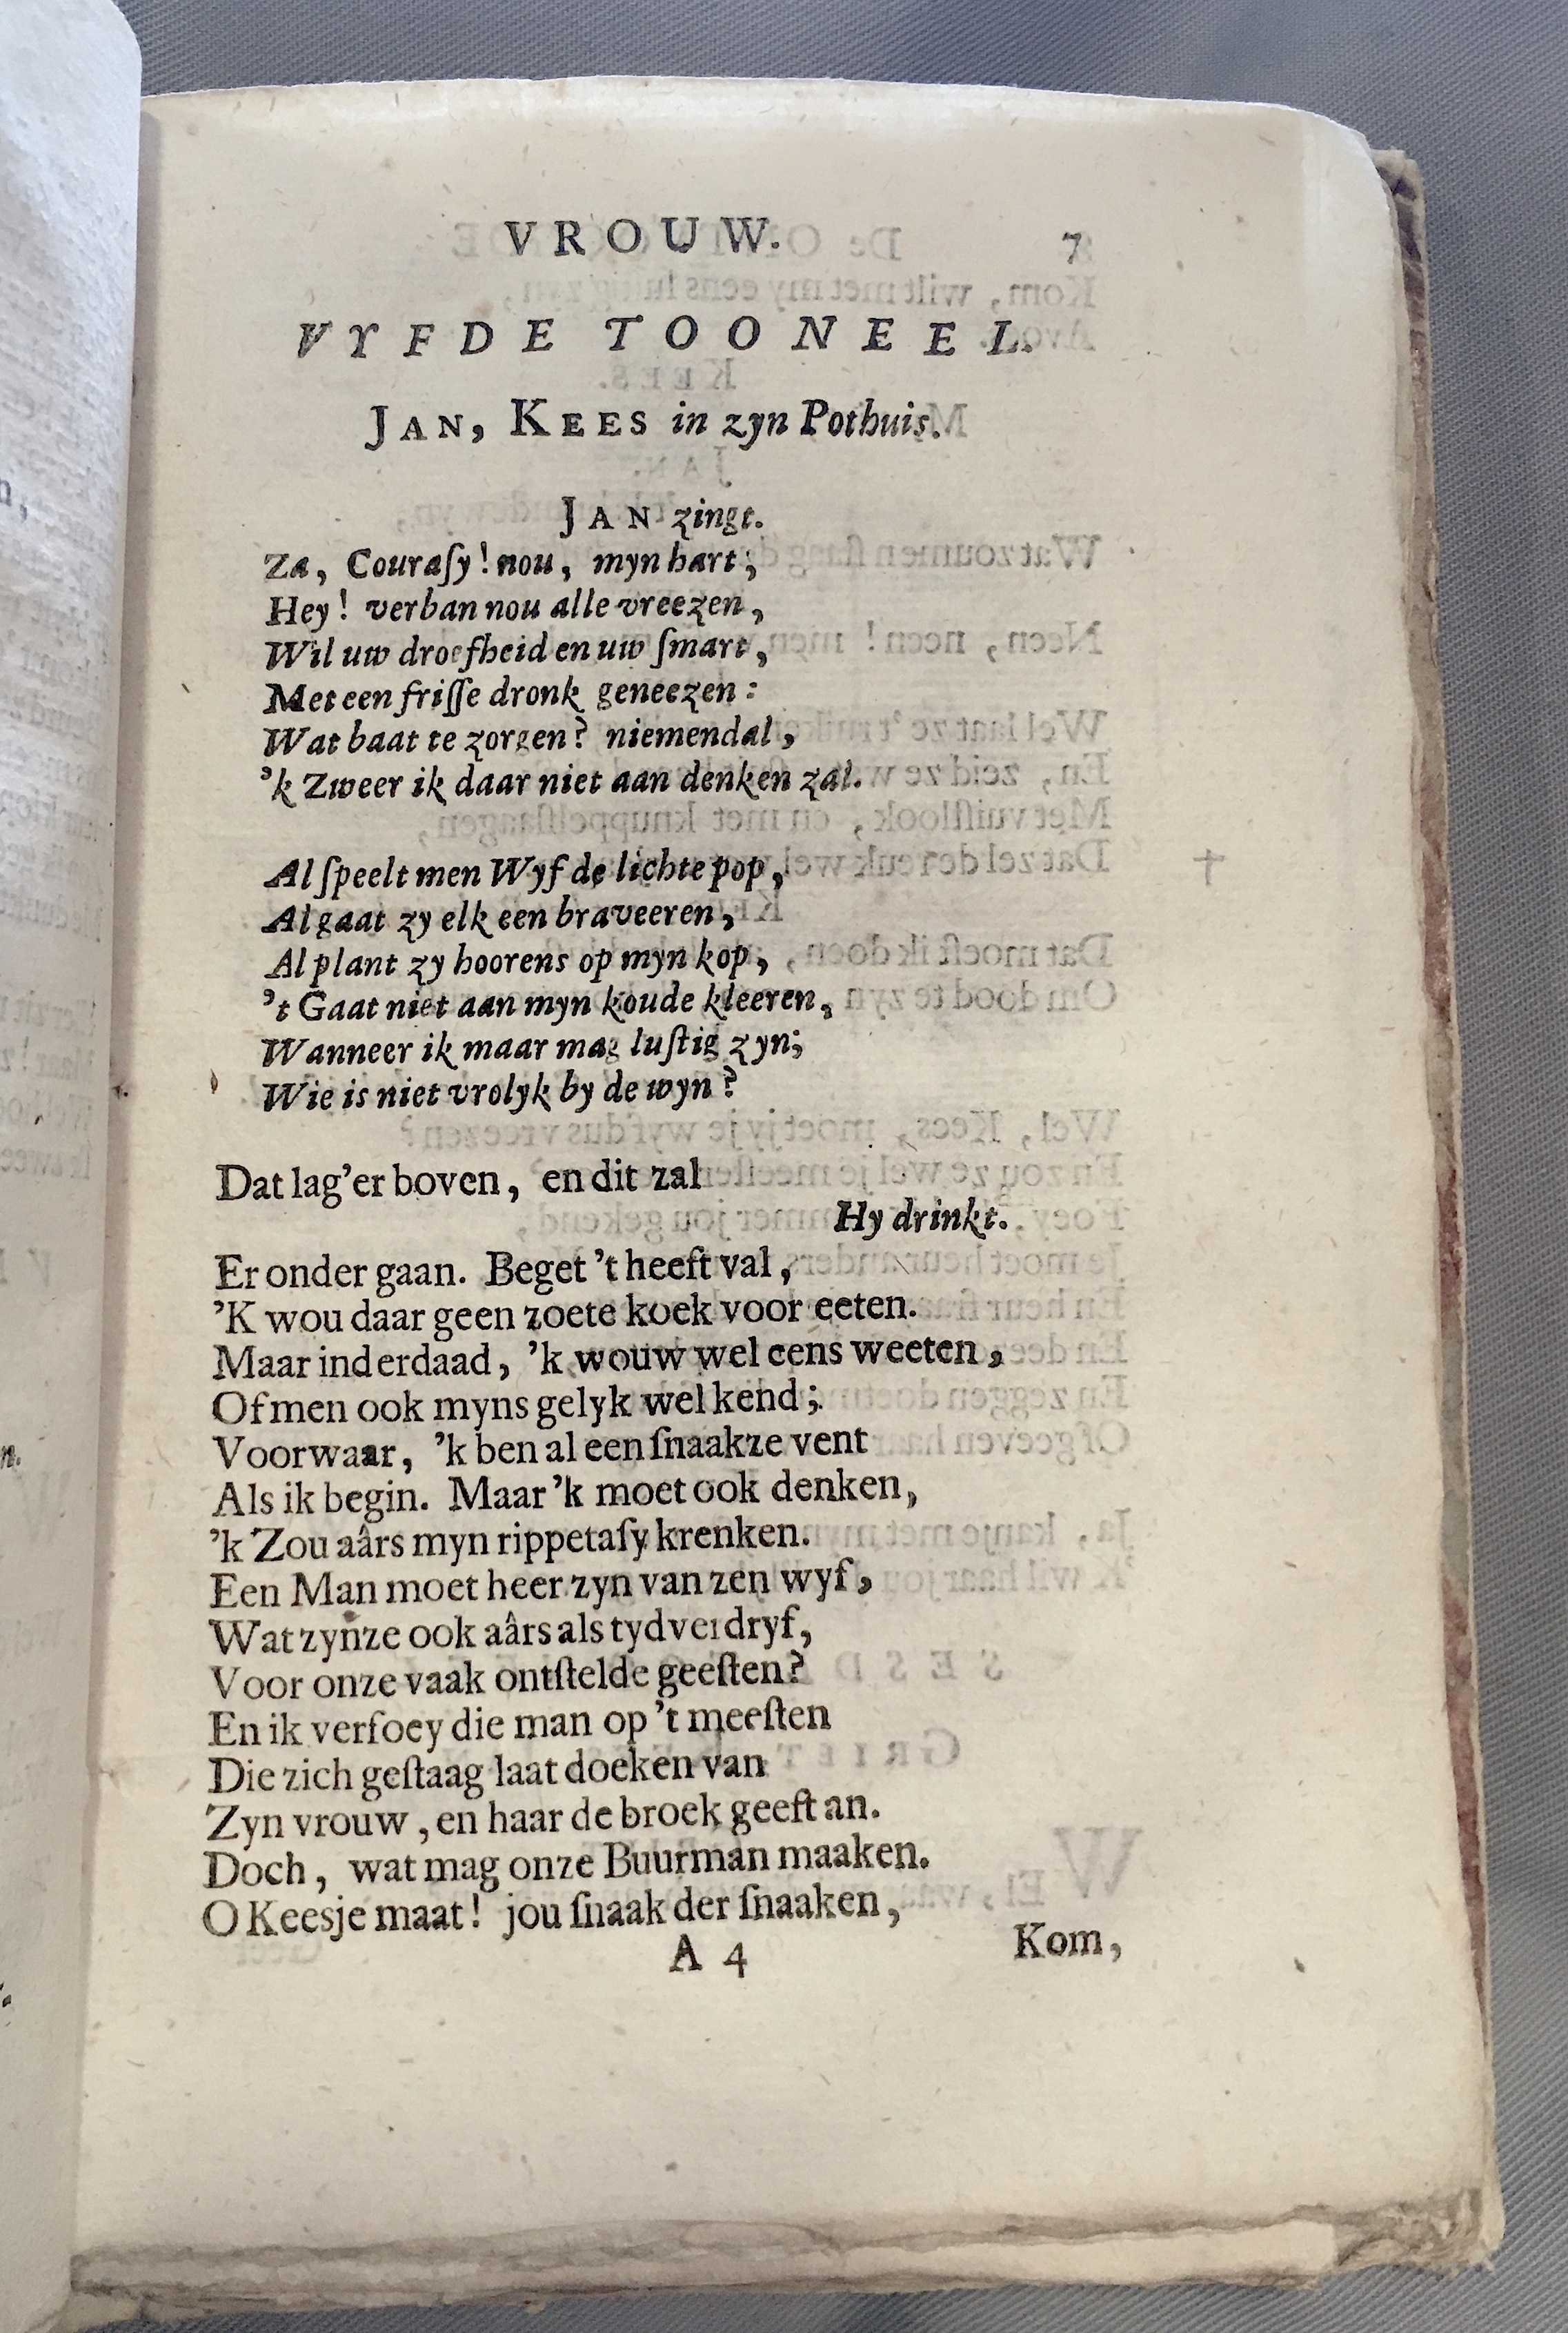 VROUW. 7
VYFDE TOONEEL.
JAN, KEES in zyn Pothuis.
JAN zingt.
Za, Couraſy! nou, myn hart;
Hey! verban nou alle vreezen,
Wil uw droefheid en uw ſmart,
Met een friſſe dronk geneezen:
Wat baat te zorgen? niemendal,
'k Zweer ik daar niet aan denken zal.
Al ſpeelt men Wyf de lichte pop,
Al gaat zy elk een braveeren,
Al plant zy hoorens op myn kop,
't Gaat niet aan myn koude kleeren,
Wanneer ik maar mag luſtig zyn;
Wie is niet vrolyk by de wyn?
Dat lag'er boven, en dit zal
Hy drinkt.
Er onder gaan. Beget 't heeft val,
'K wou daar geen zoete koek voor eeten.
Maar inderdaad, 'k wouw wel eens weeten,
Of men ook myns gelyk wel kend;
Voorwaar, 'k ben al een ſnaakze vent
Als ik begin. Maar 'k moet ook denken,
'k Zou aârs myn rippetaſy krenken.
Een Man moet heer zyn van zen wyf,
Wat zynze ook aârs als tydverdryf,
Voor onze vaak ontſtelde geeſten?
En ik verfoey die man op 't meeſten
Die zich geſtaag laat doeken van
Zyn vrouw, en haar de broek geeft an.
Doch, wat mag onze Buurman maaken.
O Keesje maat! jou ſnaak der ſnaaken,
A 4 Kom,